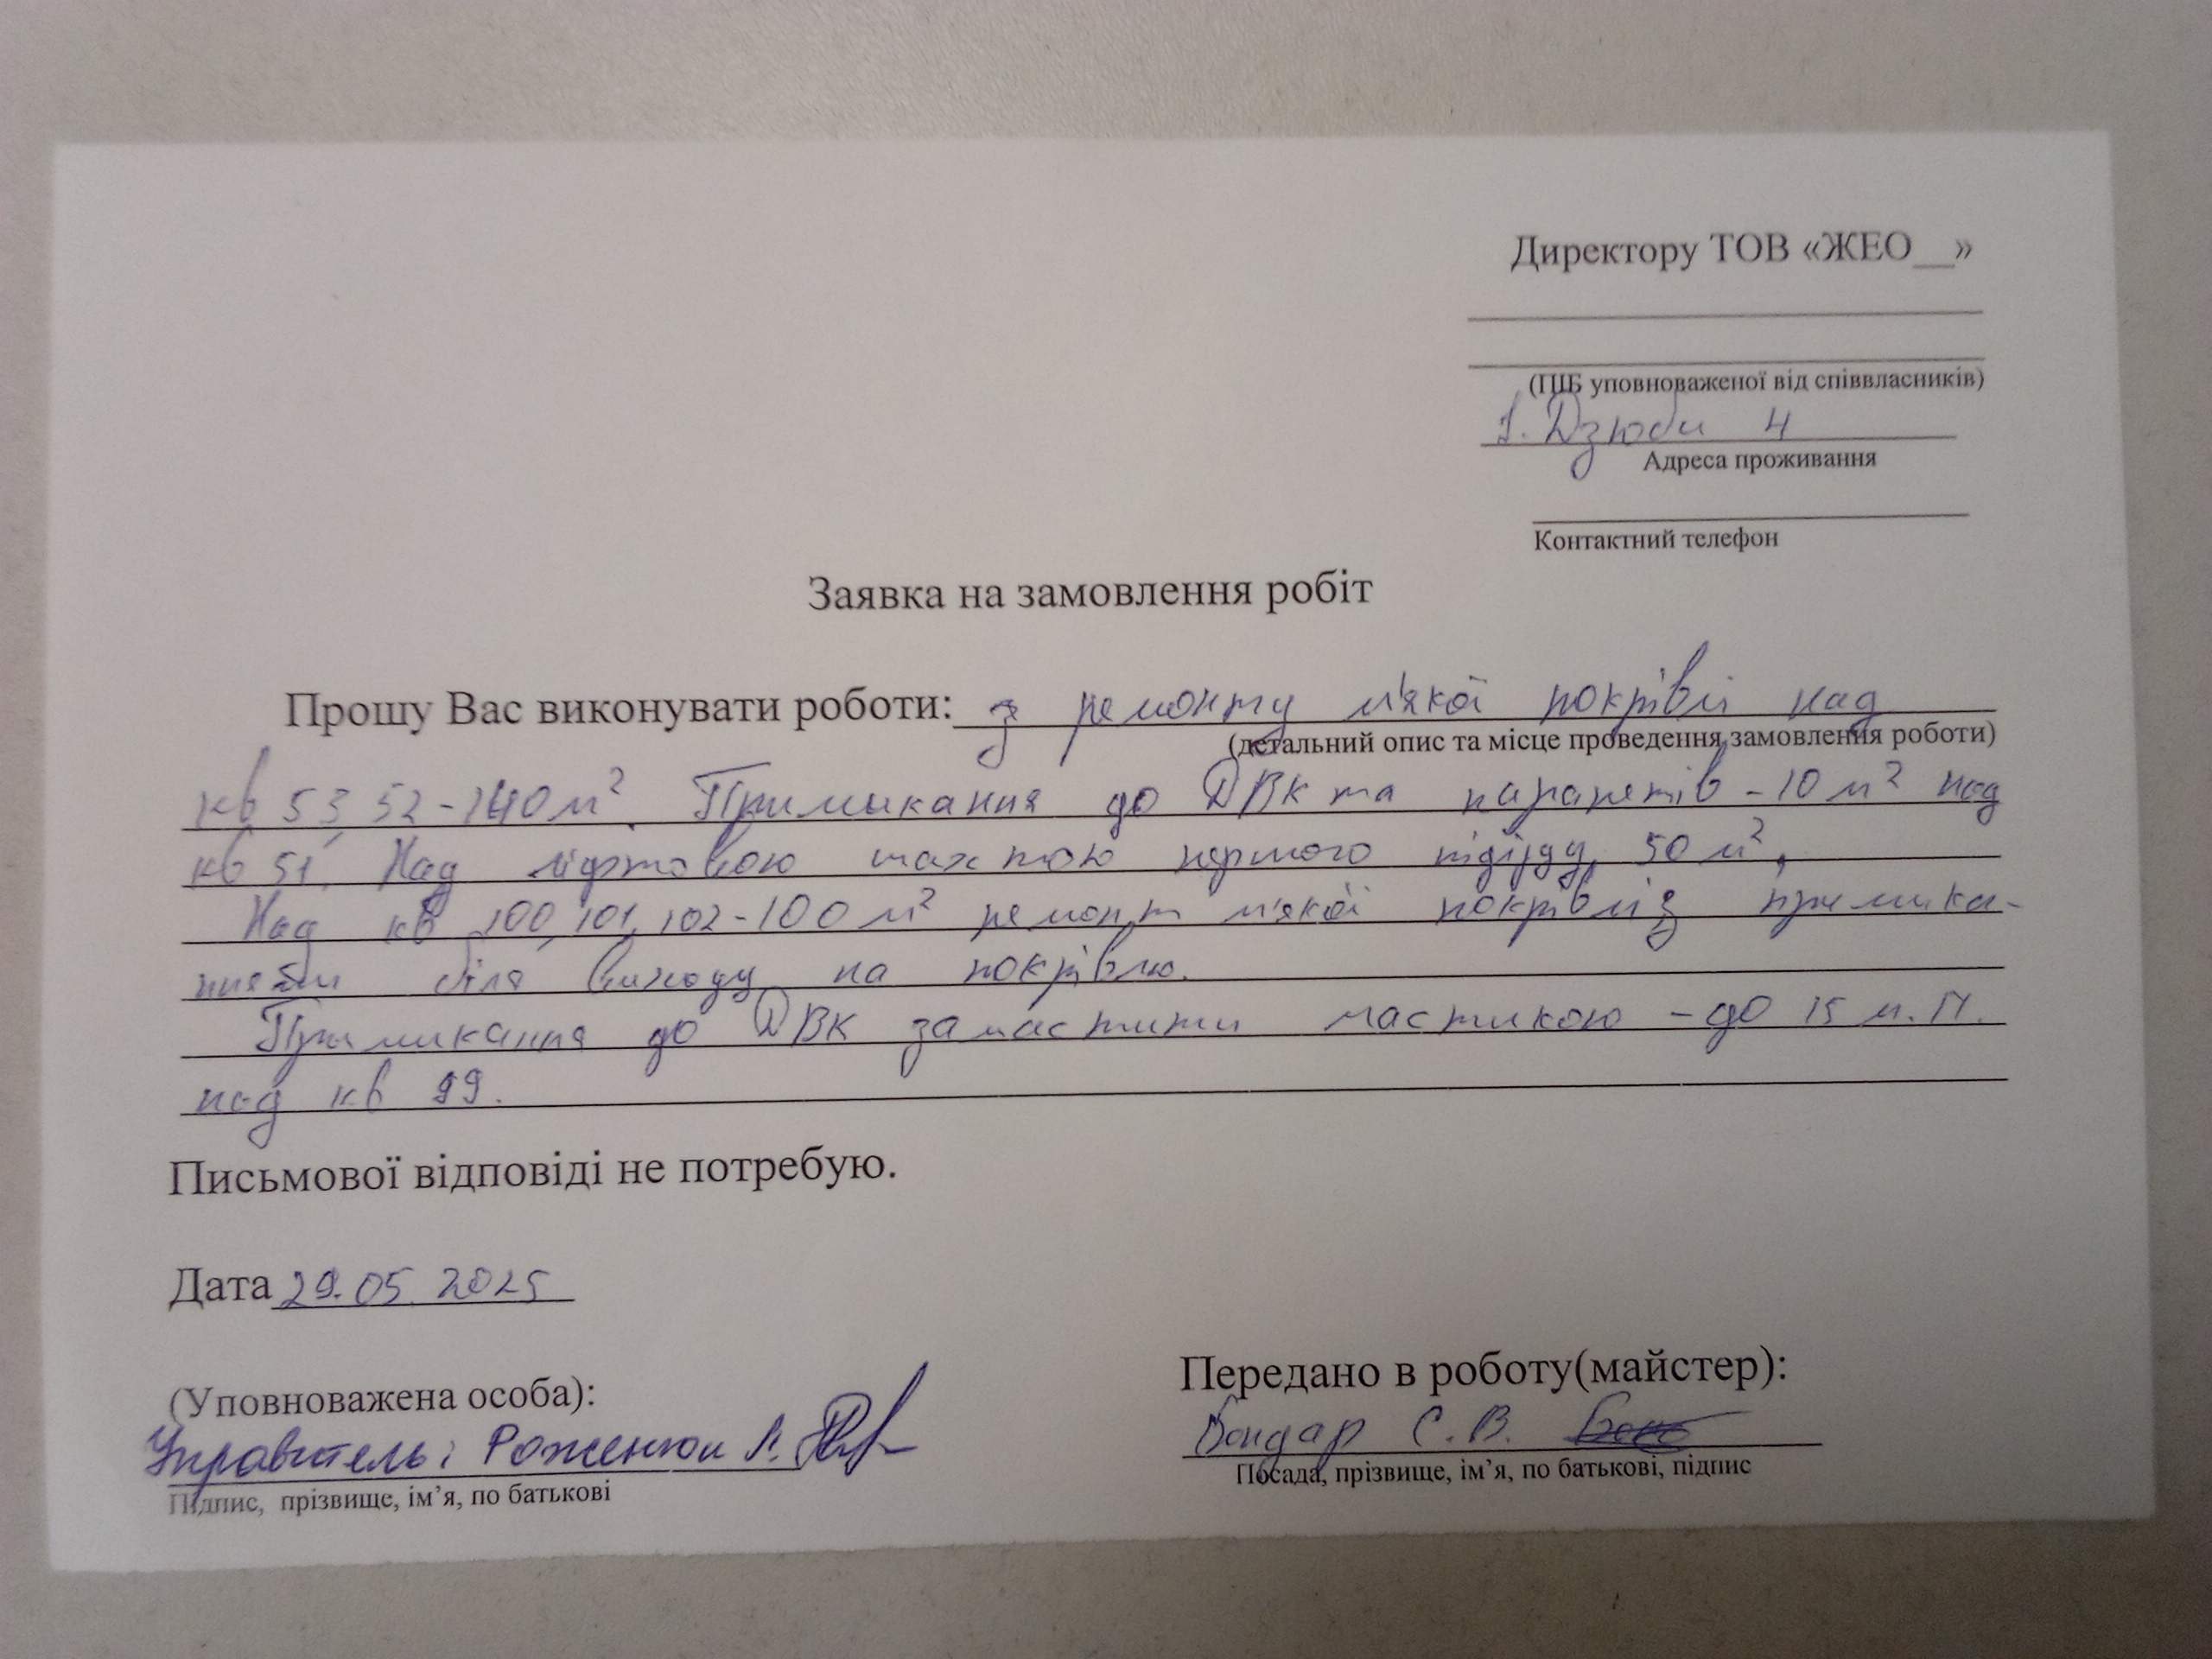 Директору ТОВ «ЖЕО__»
(ПІБ уповноваженої від співвласників)
І. Дзюби 4
Адреса проживання
Контактний телефон
Заявка на замовлення робіт
Прошу Вас виконувати роботи: з ремонту м'якої покрівлі над
(детальний опис та місце проведення замовлення роботи)
кв 53, 52 - 140 м². Примикання до ДВК та парапетів - 10 м² над
кв 51. Над ліфтовою шахтою першого підїзду, 50 м²,
Над кв 100, 101, 102 - 100 м² ремонт м'якої покрівлі з примика-
ннями біля виходу на покрівлю.
Примикання до ДВК замастити мастикою - до 15 м.п.
над кв 99.
Письмової відповіді не потребую.
Дата 29.05.2025
(Уповноважена особа):
Управитель: Роженюк
Підпис, прізвище, ім’я, по батькові
Передано в роботу(майстер):
Бондар С.В.
Посада, прізвище, ім’я, по батькові, підпис